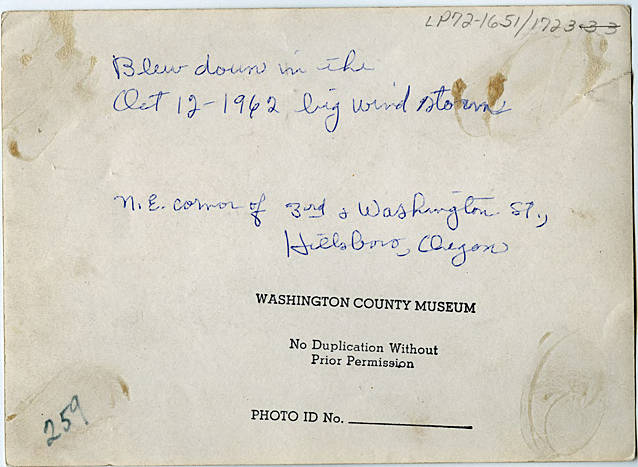 LP72-1651/1723-3 3
Blew down in the
Oct 12-1962 big wind storm
N.E. corner of 3rd & Washington St.,
Hillsboro, Oregon
WASHINGTON COUNTY MUSEUM
No Duplication Without
Prior Permission
PHOTO ID No.
259